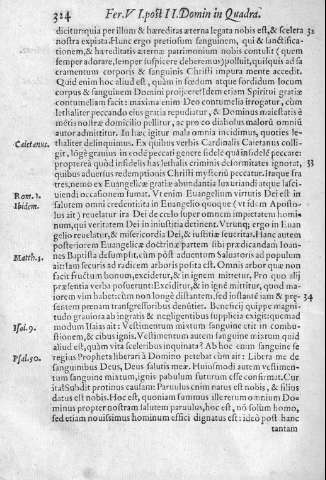 324 Fer. V I. post I I. Domin in Quadra.
dicitur quia per illum & hæreditas æterna legata nobis est, & scelera 32
nostra expiata. Hunc ergo pretiosum sanguinem, qui & sanctifica-
tionem, & hæreditatis æternæ patrimonium nobis contulit (quem
semper adorare, semper suspicere deberemus) polluit, quilquis ad sa
cramentum corporis & sanguinis Christi impura mente accedit.
Quid enim hoc aliud est, quàm in fœdum atque sordidum locum
corpus & sanguinem Domini projicere? Idem etiam Spiritui gratiæ
contumeliam facit: maxima enim Deo contumelia irrogatur, cùm
lethaliter peccando eius gratia repudiatur, & Dominus maiestatis è
mētis nostræ domicilio pellitur, ac pro eo diabolus malorū omniū
autor admittitur. In hæc igitur mala omnia incidimus, quoties le-
Caietanus. thaliter delinquimus. Ex quibus verbis Cardinalis Caietanus colli-
git, lōgè grauius in eodē peccati genere fidelē quā infidelē peccare:
propterea quòd infidelis has lethalis criminis deformitates ignorat, 33
quibus aduersus redemptionis Christi mysteriū peccatur. Itaque fra
tres, ne nos ex Euangelicæ gratiæ abundantia luxuriandi atque lasci-
Rom. 1. uiendi occasionem sumat. Vt enim Euangelium virtutis Dei est in
Ibidem. salutem omni credenti: ita in Euangelio quoque (vt idem Aposto-
lus ait) reuelatur ira Dei de cœlo super omnem impietatem homi-
num, qui veritatem Dei in iniustitia detinent. Vtrunq; ergo in Euan
gelio reuelatur, & misericordia Dei, & iustitiæ feueritas. Hanc autem
posteriorem Euangelicæ doctrinæ partem sibi prædicandam Ioan-
nes Baptista desumpsit, cùm pòst aduentum Saluatoris ad populum
Matth. 3. ait: Iam securis ad radicem arboris posita est. Omnis arbor quæ non
facit fructum bonum, excidetur, & in ignem mittetur. Pro quo alij
præsentia verba posuerunt: Exciditur, & in ignē mittitur, quod ma-
iorem vim habet: cùm non longè distantem, sed instantē iam & præ- 34
sentem pœnam transgressoribus denūtiet. Beneficij quippe magni-
tudo grauiora ab ingratis & negligentibus supplicia exigit: quemad
Isai. 9. modum Isaias ait: Vestimentum mixtum sanguine erit in combu-
stionem, & cibus ignis. Vestimentum autem sanguine mixtum quid
aliud est, quàm vita sceleribus inquinata? Ab hoc enim sanguine se
Psal. 50. regius Propheta liberari à Domino petebat cùm ait: Libera me de
sanguinibus Deus, Deus salutis meæ. Huiusmodi autem vestimen-
tum sanguine mixtum, ignis pabulum futurum esse confirmat. Cur
ita? Subdit protinus causam: Paruulus enim natus est nobis, & filius
datus est nobis. Hoc est, quoniam summus ille rerum omnium Do-
minus propter nostram salutem paruulus, hoc est, nō solùm homo,
sed etiam nouissimus hominum effici dignatus est: ideò post hanc
tantam